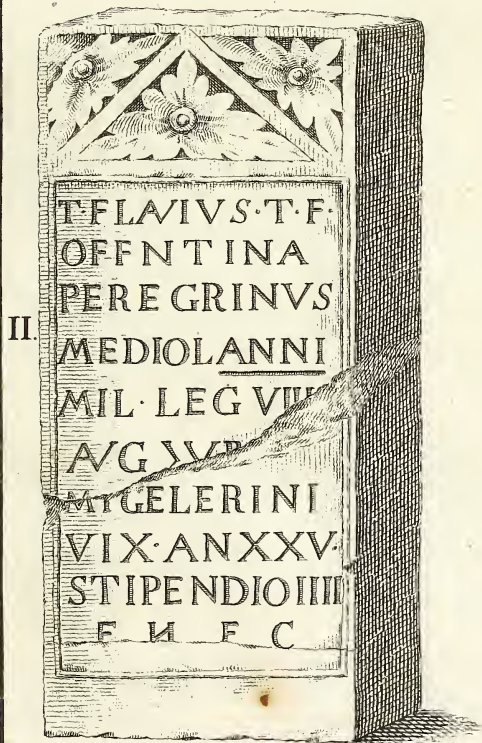 T·FLAVIVS·T·F·
OFFNTINA
PEREGRINVS
II.
MEDIOLANNI
MIL·LEG VIII
AVG
GELERINI
VIX·ANXXV·
STIPENDIOIIII
F N F C